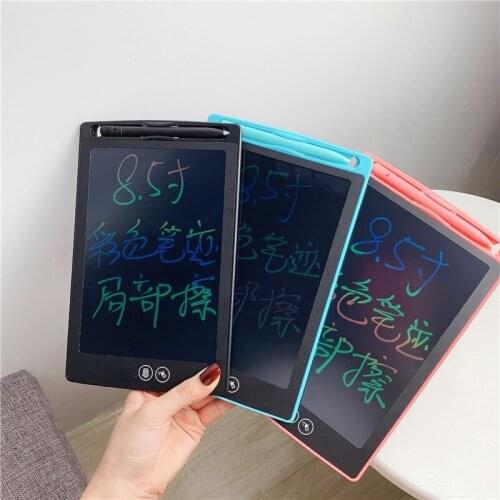 8.5寸
彩色笔迹
局部擦
8.5寸
彩色笔迹
局部擦
8.5寸
色笔迹
部擦